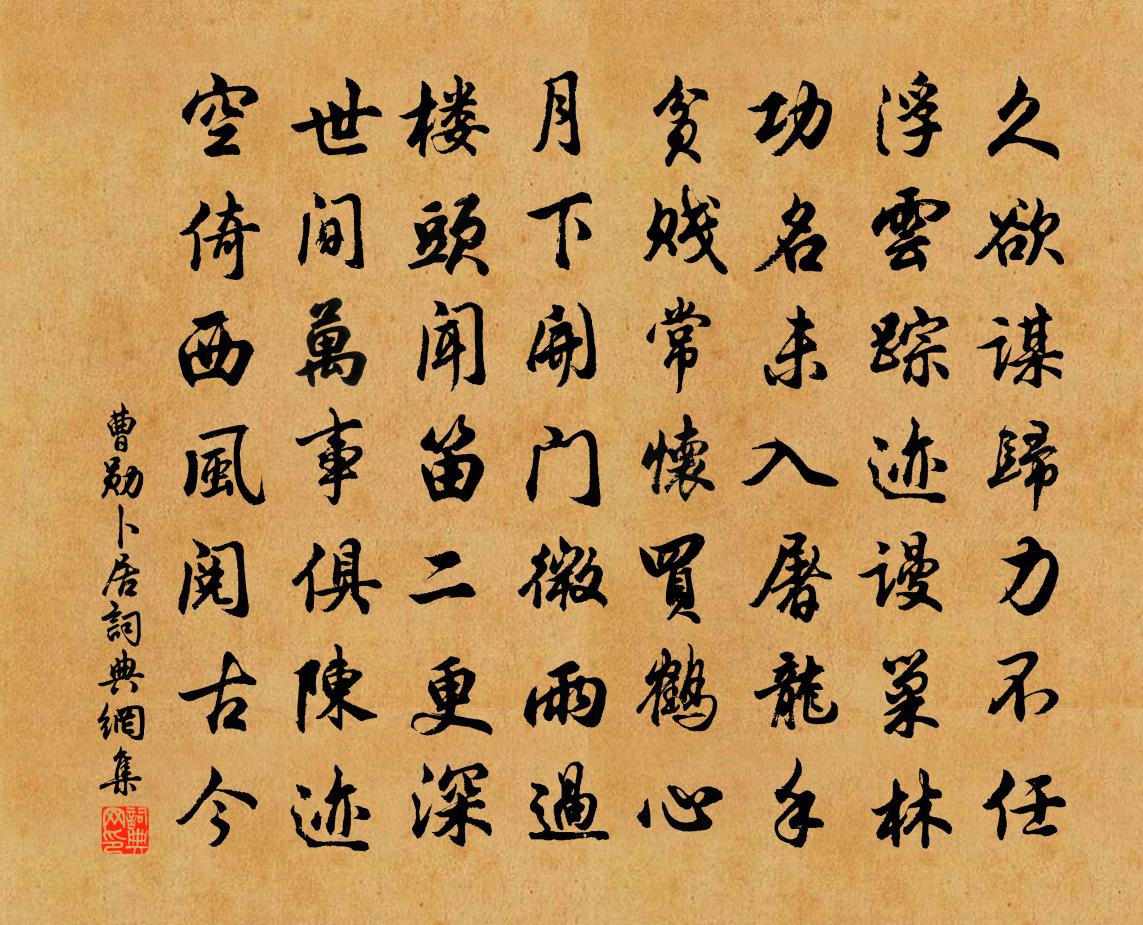 久欲謀歸力不任
浮雲踪迹謾巢林
功名未入屠龍手
貧賤常懷買鶴心
月下開门微雨過
楼頭聞笛二更深
世间萬事俱陳迹
空倚西風閱古今
曹勛卜居詞典網集
詞典网印